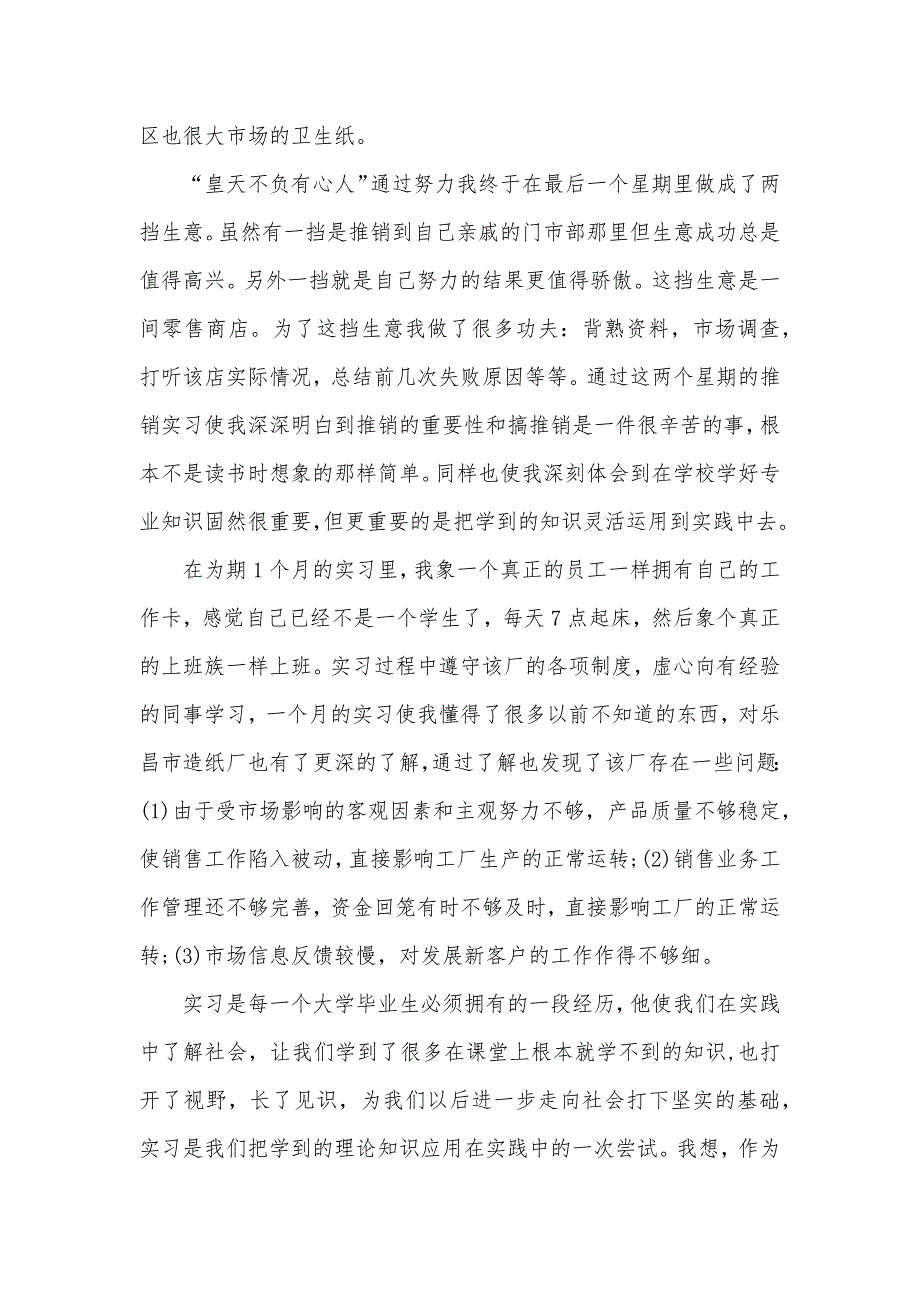 区也很大市场的卫生纸。
“皇天不负有心人”通过努力我终于在最后一个星期里做成了两
挡生意。虽然有一挡是推销到自己亲戚的门市部那里但生意成功总是
值得高兴。另外一挡就是自己努力的结果更值得骄傲。这挡生意是一
间零售商店。为了这挡生意我做了很多功夫：背熟资料，市场调查，
打听该店实际情况，总结前几次失败原因等等。通过这两个星期的推
销实习使我深深明白到推销的重要性和搞推销是一件很辛苦的事，根
本不是读书时想象的那样简单。同样也使我深刻体会到在学校学好专
业知识固然很重要，但更重要的是把学到的知识灵活运用到实践中去。
在为期1个月的实习里，我象一个真正的员工一样拥有自己的工
作卡，感觉自己已经不是一个学生了，每天7点起床，然后象个真正
的上班族一样上班。实习过程中遵守该厂的各项制度，虚心向有经验
的同事学习，一个月的实习使我懂得了很多以前不知道的东西，对乐
昌市造纸厂也有了更深的了解，通过了解也发现了该厂存在一些问题：
(1)由于受市场影响的客观因素和主观努力不够，产品质量不够稳定，
使销售工作陷入被动，直接影响工厂生产的正常运转;(2)销售业务工
作管理还不够完善，资金回笼有时不够及时，直接影响工厂的正常运
转;(3)市场信息反馈较慢，对发展新客户的工作作得不够细。
实习是每一个大学毕业生必须拥有的一段经历，他使我们在实践
中了解社会，让我们学到了很多在课堂上根本就学不到的知识，也打
开了视野，长了见识，为我们以后进一步走向社会打下坚实的基础，
实习是我们把学到的理论知识应用在实践中的一次尝试。我想，作为